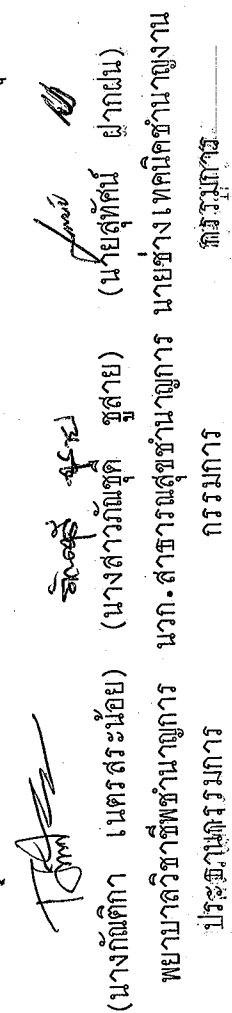 (นางกัณติกา เนตรสระน้อย)
พยาบาลวิชาชีพชำนาญการ
ประธานกรรมการ
(นางสาวภัณชุด ชูสาย)
นวก.สาธารณสุขชำนาญการ
กรรมการ
(นายสุทัศน์ ฝากฝน)
นายช่างเทคนิคชำนาญงาน
กรรมการ